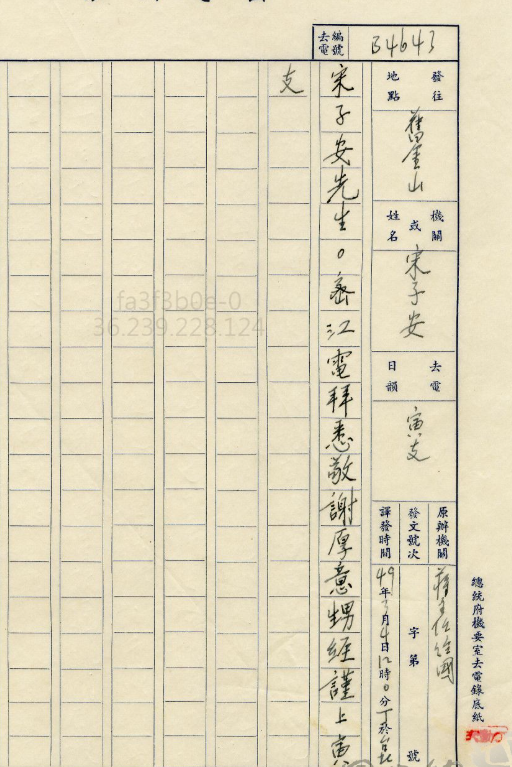 總統府機要室去電錄底紙
去電編號
B4643
發往地點
舊金山
機關或姓名
宋子安
去電日韻
寅支
原辦機關
蔣主任經國
發文號次
字第
號
譯發時間
49年3月4日12時0分
宋子安先生。密江電拜悉敬謝厚意甥經謹上寅
支
fa3f3b0e-0
36.239.228.124